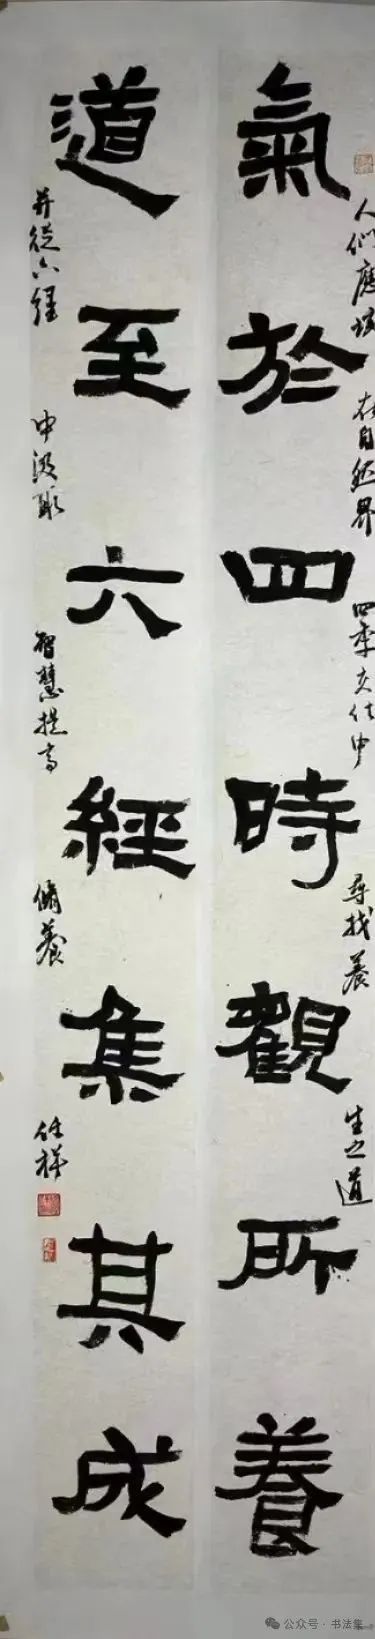 氣於四時觀所養
道至六經集其成
人們應該 在自然界 四季交住中 尋找養 生之道
并從六經 中汲取 智慧提高 脩養 任祥
公众号·书法集